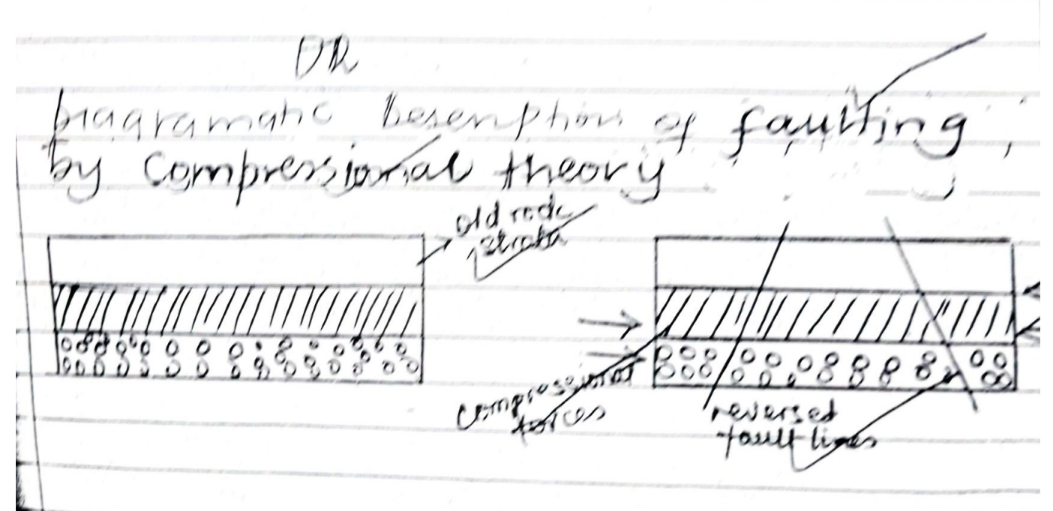 OR
Diagramatic Desenption of faulting,
by Compressional theory
old rock
strata
compressional
forces
reversed
fault lines